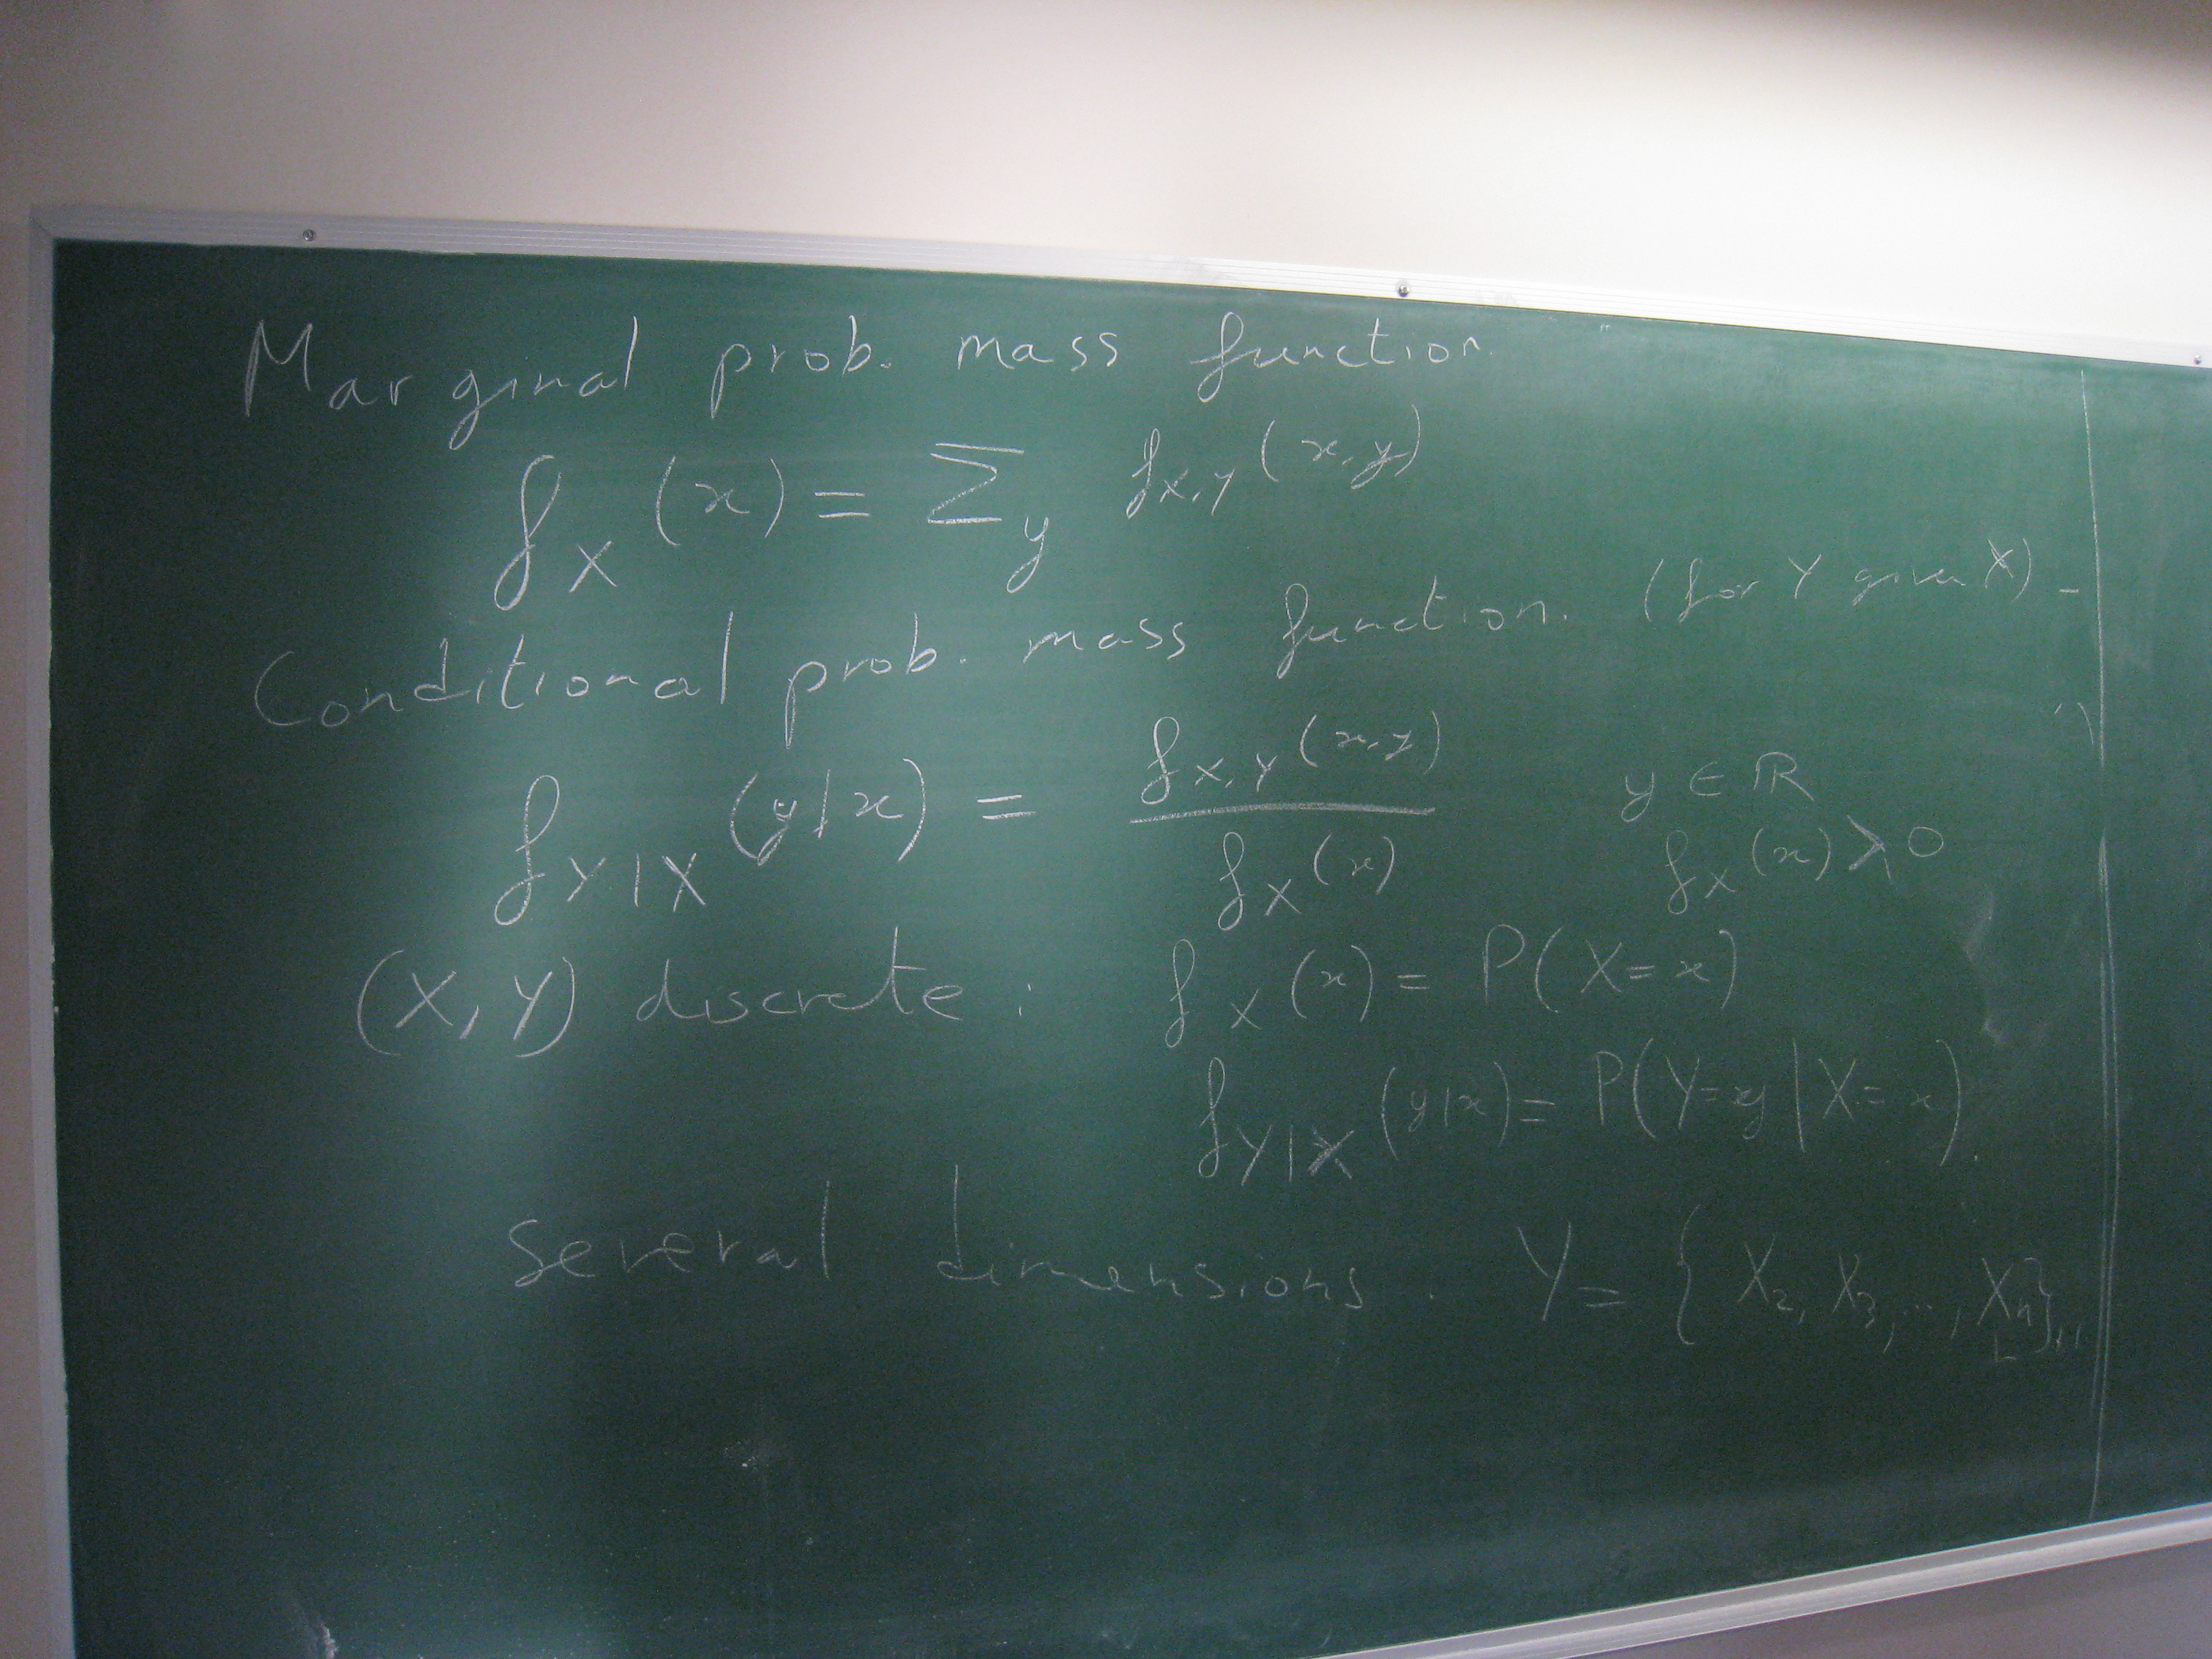 Marginal prob. mass function.
f_X (x) = Σ_y f_{X,Y} (x,y)
Conditional prob. mass function. (for Y given X) -
f_{Y|X} (y|x) = f_{X,Y} (x,y) / f_X (x) y ∈ ℝ
f_X (x) > 0
(X, Y) discrete : f_X (x) = P(X = x)
f_{Y|X} (y|x) = P(Y = y | X = x).
Several dimensions. Y = { X_2, X_3, ..., X_n }